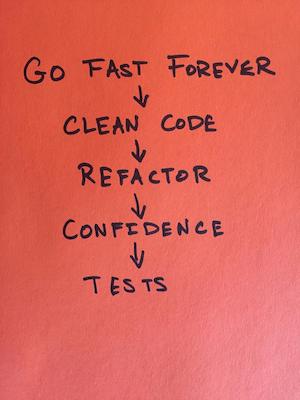 GO FAST FOREVER
↓
CLEAN CODE
↓
REFACTOR
↓
CONFIDENCE
↓
TESTS